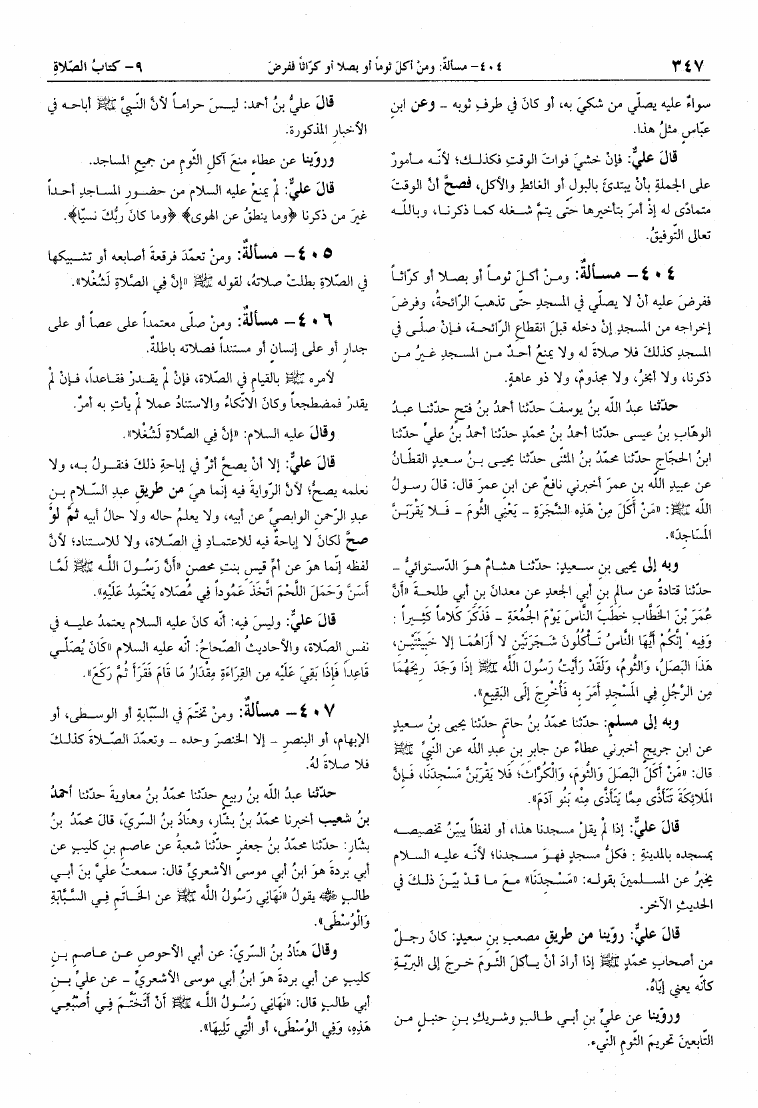 ٣٤٧
٤٠٤- مسألة: ومن أكل ثوماً أو بصلا أو كرّاثاً ففرض
٩- كتابُ الصّلاةِ
سواءٌ عليه يصلّي من شكيَ به، أو كانَ في طرفِ ثوبه - وعن ابنِ
عبّاسٍ مثلُ هذا.
قالَ عليٌّ: فإنْ خشيَ فواتَ الوقتِ فكذلكَ؛ لأنّه مأمورٌ
على الجملةِ بأنْ يبتدئَ بالبولِ أو الغائطِ والأكلِ، فصحَّ أنَّ الوقتَ
متمادٍ له إذ أمرَ بتأخيرها حتّى يتمَّ شغله كما ذكرنا، وباللّه
تعالى التّوفيقُ.
٤٠٤- مسألةٌ: ومنْ أكلَ ثوماً أو بصلا أو كرّاثاً
ففرضَ عليه أنْ لا يصلّيَ في المسجدِ حتّى تذهبَ الرّائحةُ، وفرضَ
إخراجه من المسجدِ إنْ دخله قبلَ انقطاعِ الرّائحةِ، فإنْ صلّى في
المسجدِ كذلكَ فلا صلاةَ له ولا يمنعُ أحدٌ منَ المسجدِ غيرُ من
ذكرنا، ولا أبخرُ، ولا مجذومٌ، ولا ذو عاهةٍ.
حدّثنا عبدُ اللّه بنُ يوسفَ حدّثنا أحمدُ بنُ فتحٍ حدّثنا عبدُ
الوهّابِ بنُ عيسى حدّثنا أحمدُ بنُ محمّدٍ حدّثنا أحمدُ بنُ عليٍّ حدّثنا
ابنُ الحجّاجِ حدّثنا محمّدُ بنُ المثنّى حدّثنا يحيى بنُ سعيدٍ القطّانُ
عن عبيدِ اللّه بنِ عمرَ أخبرني نافعٌ عن ابنِ عمرَ قالَ: قالَ رسولُ
اللّه ﷺ: «مَنْ أَكَلَ مِنْ هَذِهِ الشَّجَرَةِ - يَعْنِي الثُّومَ - فَلا يَقْرَبَنَّ
المَسَاجِدَ».
وبه إلى يحيى بنِ سعيدٍ: حدّثنا هشامٌ هوَ الدّستوائيُّ -
حدّثنا قتادةُ عن سالمِ بنِ أبي الجعدِ عن معدانَ بنِ أبي طلحةَ «أنَّ
عُمَرَ بْنَ الخَطَّابِ خَطَبَ النَّاسَ يَوْمَ الجُمُعَةِ - فَذَكَرَ كَلاماً كَثِيراً :
وَفِيهِ إنَّكُمْ أَيُّهَا النَّاسُ تَأْكُلُونَ شَجَرَتَيْنِ لا أَرَاهُمَا إلا خَبِيثَتَيْنِ،
هَذَا البَصَلَ، وَالثُّومَ، وَلَقَدْ رَأَيْتُ رَسُولَ اللَّه ﷺ إذَا وَجَدَ رِيحَهُمَا
مِنَ الرَّجُلِ فِي المَسْجِدِ أَمَرَ بِهِ فَأُخْرِجَ إلَى البَقِيعِ».
وبه إلى مسلمٍ: حدّثنا محمّدُ بنُ حاتمٍ حدّثنا يحيى بنُ سعيدٍ
عن ابنِ جريجٍ أخبرني عطاءٌ عن جابرِ بنِ عبدِ اللّه عن النّبيِّ ﷺ
قالَ: «مَنْ أَكَلَ البَصَلَ وَالثُّومَ، وَالْكُرَّاثَ؛ فَلا يَقْرَبَنَّ مَسْجِدَنَا، فَإِنَّ
المَلائِكَةَ تَتَأَذَّى مِمَّا يَتَأَذَّى مِنْهُ بَنُو آدَمَ».
قالَ عليٌّ: إذا لم يقلْ مسجدنا هذا، أو لفظاً يبيّنُ تخصيصه
بمسجده بالمدينةِ : فكلُّ مسجدٍ فهوَ مسجدنا؛ لأنّه عليه السلام
يخبرُ عن المسلمينَ بقوله: «مَسْجِدَنَا» معَ ما قدْ بيّنَ ذلكَ في
الحديثِ الآخرِ.
قالَ عليٌّ: روّينا من طريقِ مصعبِ بنِ سعيدٍ: كانَ رجلٌ
من أصحابِ محمّدٍ ﷺ إذا أرادَ أنْ يأكلَ الثّومَ خرجَ إلى البرّيّةِ
كأنّه يعني إيّاهُ.
وروّينا عن عليِّ بنِ أبي طالبٍ وشريكِ بنِ حنبلٍ من
التّابعينَ تحريمَ الثّومِ النّيءِ.
قالَ عليُّ بنُ أحمدَ: ليسَ حراماً لأنَّ النّبيَّ ﷺ أباحه في
الأخبارِ المذكورةِ.
وروّينا عن عطاءٍ منعَ آكلِ الثّومِ من جميعِ المساجدِ.
قالَ عليٌّ: لم يمنعْ عليه السلام من حضورِ المساجدِ أحداً
غيرَ من ذكرنا ﴿وما ينطقُ عن الهوى﴾ ﴿وما كانَ ربّكَ نسيّاً﴾.
٤٠٥- مسألةٌ: ومنْ تعمّدَ فرقعةَ أصابعه أو تشبيكها
في الصّلاةِ بطلتْ صلاتهُ، لقوله ﷺ «إنَّ فِي الصَّلاةِ لَشُغْلا».
٤٠٦- مسألةٌ: ومنْ صلّى معتمداً على عصاً أو على
جدارٍ أو على إنسانٍ أو مستنداً فصلاته باطلةٌ.
لأمره ﷺ بالقيامِ في الصّلاةِ، فإنْ لم يقدرْ فقاعداً، فإنْ لم
يقدرْ فمضطجعاً وكانَ الاتّكاءُ والاستنادُ عملا لم يأتِ به أمرٌ.
وقالَ عليه السلام: «إنَّ فِي الصَّلاةِ لَشُغْلا».
قالَ عليٌّ: إلا أنْ يصحَّ أثرٌ في إباحةِ ذلكَ فنقولُ به، ولا
نعلمه يصحُّ؛ لأنَّ الرّوايةَ فيه إنّما هيَ من طريقِ عبدِ السّلامِ بنِ
عبدِ الرّحمنِ الوابصيِّ عن أبيه، ولا يعلمُ حاله ولا حالُ أبيه ثمَّ لوْ
صحَّ لكانَ لا إباحةَ فيه للاعتمادِ في الصّلاةِ، ولا للاستنادِ؛ لأنَّ
لفظه إنّما هوَ عن أمِّ قيسٍ بنتِ محصنٍ «أَنَّ رَسُولَ اللَّه ﷺ لَمَّا
أَسَنَّ وَحَمَلَ اللَّحْمَ اتَّخَذَ عَمُوداً فِي مُصَلاه يَعْتَمِدُ عَلَيْهِ».
قالَ عليٌّ: وليسَ فيه: أنّه كانَ عليه السلام يعتمدُ عليه في
نفسِ الصّلاةِ، والأحاديثُ الصّحاحُ: أنّه عليه السلام «كَانَ يُصَلِّي
قَاعِداً فَإِذَا بَقِيَ عَلَيْهِ مِن القِرَاءَةِ مِقْدَارُ مَا قَامَ فَقَرَأَ ثُمَّ رَكَعَ».
٤٠٧- مسألةٌ: ومنْ تختّمَ في السّبّابةِ أو الوسطى، أو
الإبهامِ، أو البنصرِ - إلا الخنصرَ وحده - وتعمّدَ الصّلاةَ كذلكَ
فلا صلاةَ لهُ.
حدّثنا عبدُ اللّه بنُ ربيعٍ حدّثنا محمّدُ بنُ معاويةَ حدّثنا أحمدُ
بنُ شعيبٍ أخبرنا محمّدُ بنُ بشّارٍ، وهنّادُ بنُ السّريِّ، قالَ محمّدُ بنُ
بشّارٍ: حدّثنا محمّدُ بنُ جعفرٍ حدّثنا شعبةُ عن عاصمِ بنِ كليبٍ عن
أبي بردةَ هوَ ابنُ أبي موسى الأشعريِّ قالَ: سمعتُ عليَّ بنَ أبي
طالبٍ ﷺ يقولُ «نَهَانِي رَسُولُ اللَّه ﷺ عن الخَاتَمِ فِي السَّبَّابَةِ
وَالْوُسْطَى».
وقالَ هنّادُ بنُ السّريِّ: عن أبي الأحوصِ عن عاصمِ بنِ
كليبٍ عن أبي بردةَ هوَ ابنُ أبي موسى الأشعريِّ - عن عليِّ بنِ
أبي طالبٍ قالَ: «نَهَانِي رَسُولُ اللَّه ﷺ أَنْ أَتَخَتَّمَ فِي أُصْبُعِي
هَذِهِ، وَفِي الوُسْطَى، أو الَّتِي تَلِيهَا».